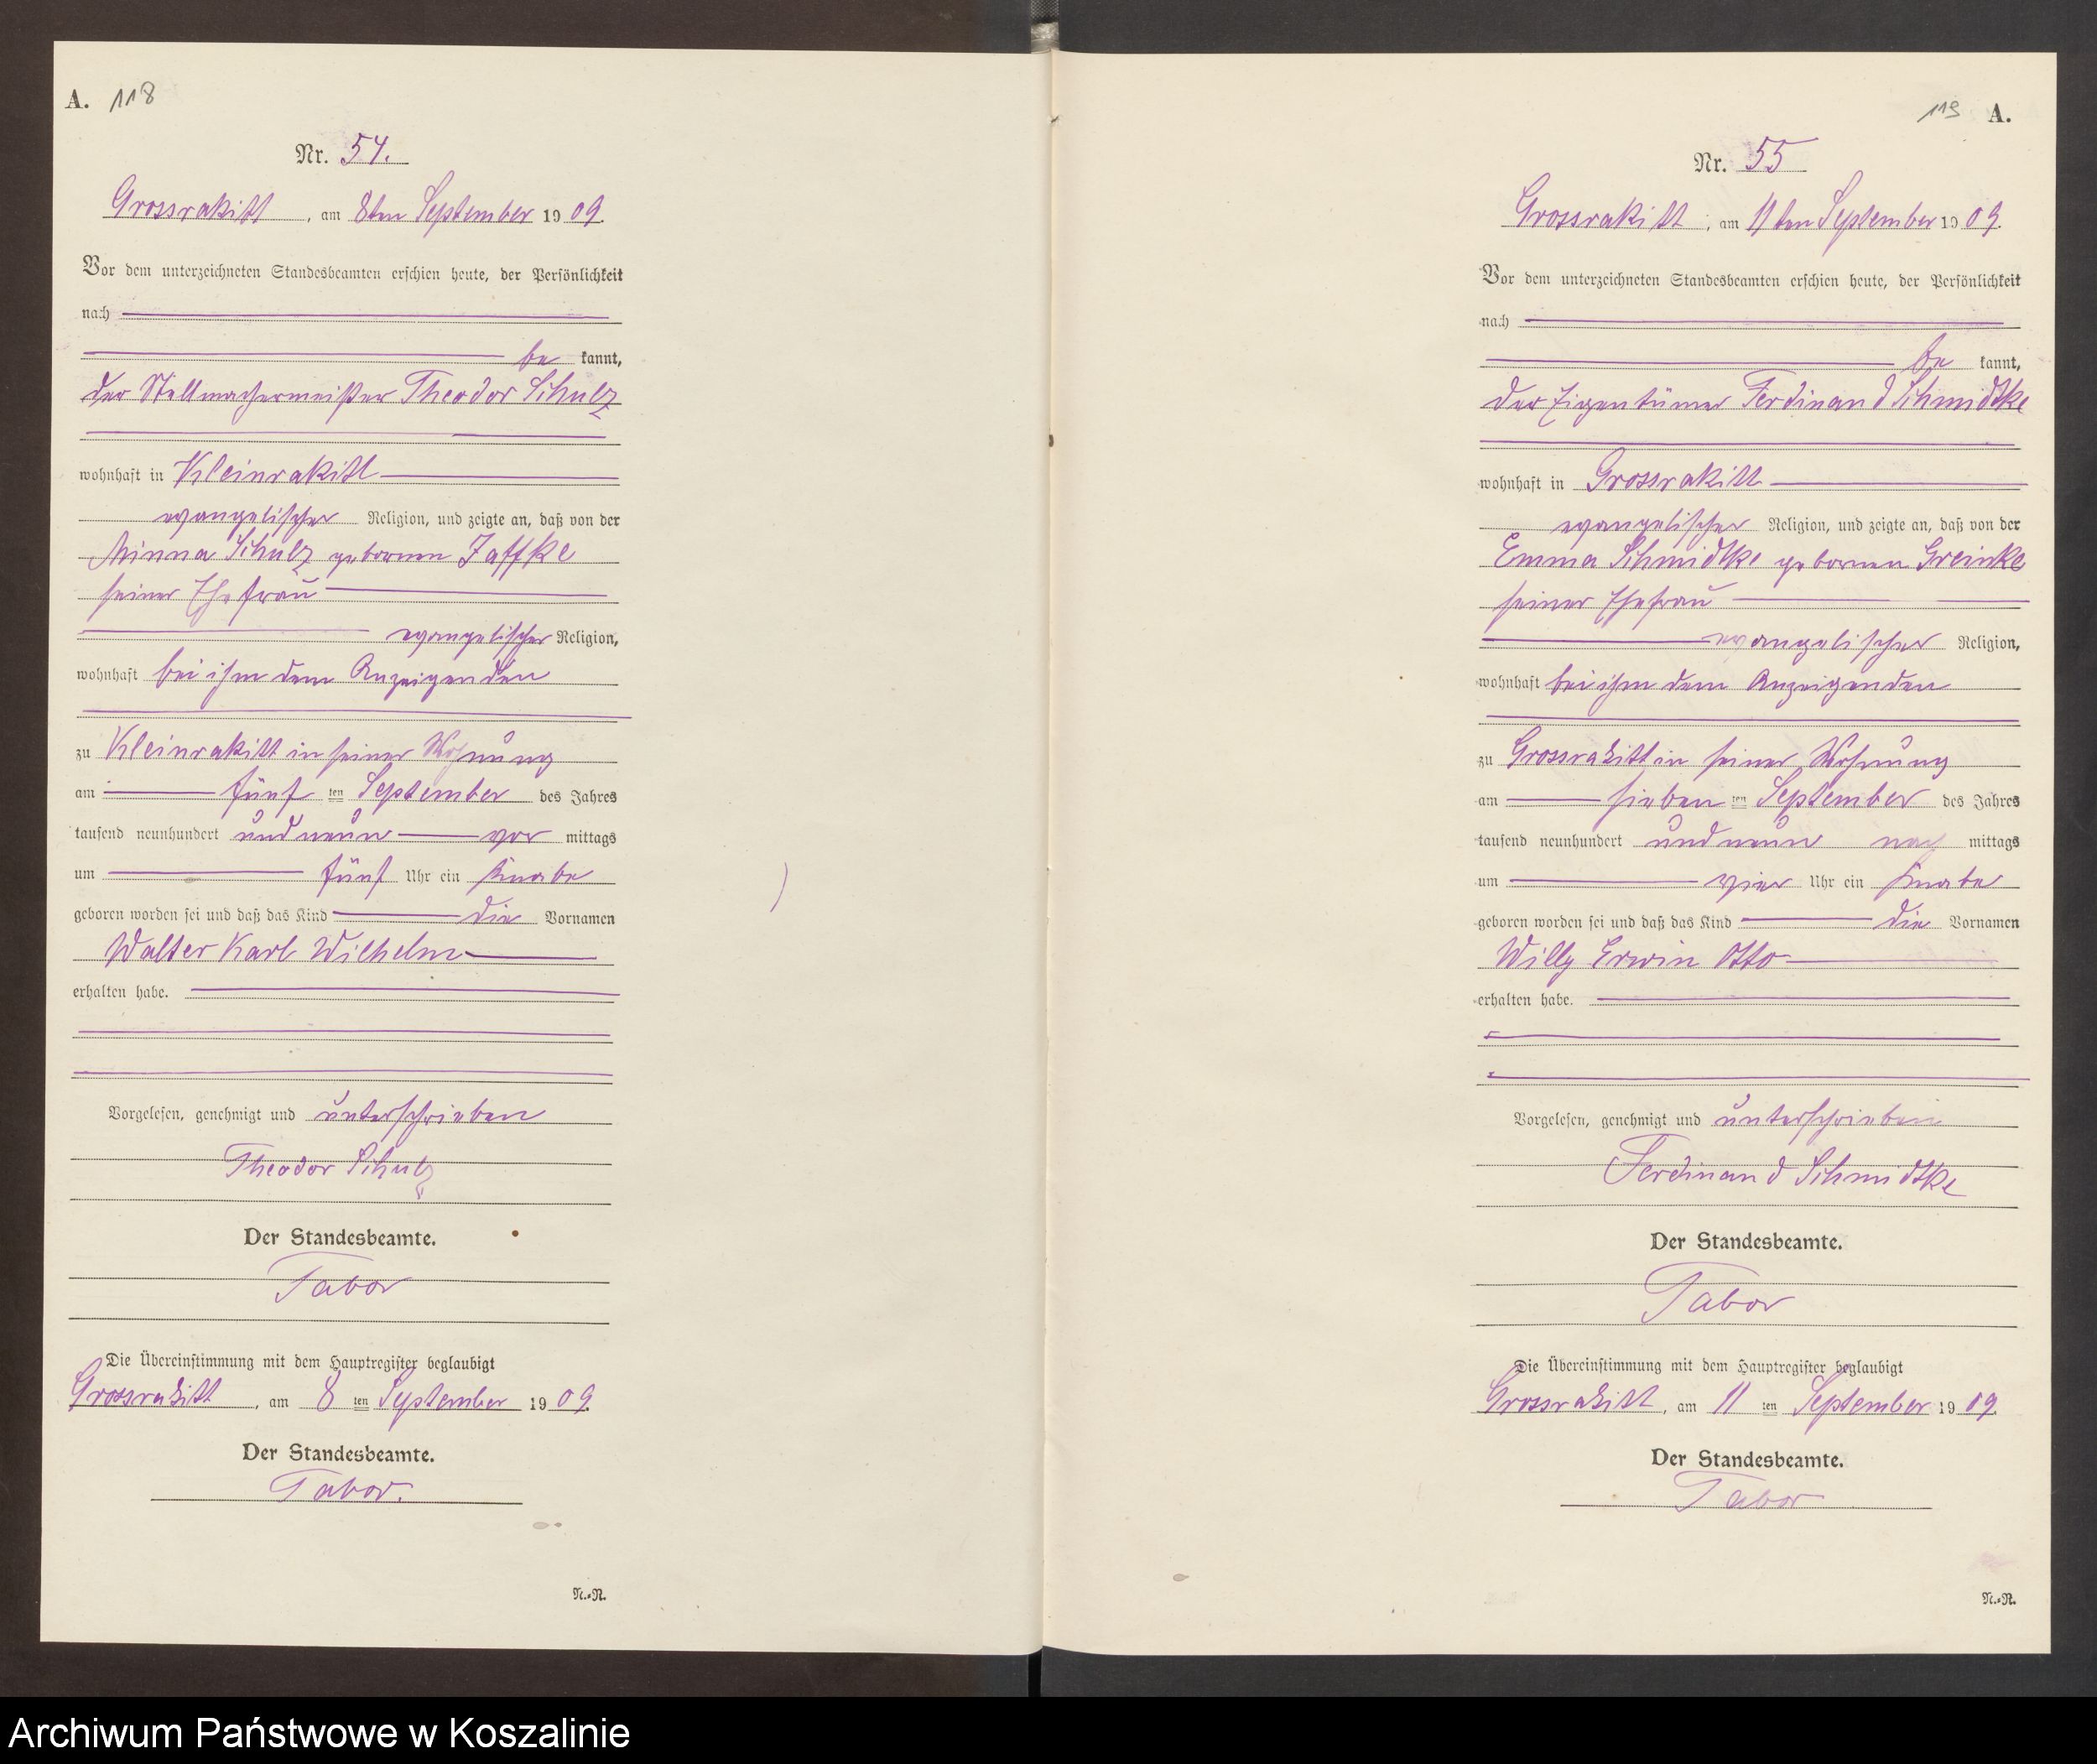 A. 118
Nr. 54.
Grossrakitt, am 8ten September 1909.
Vor dem unterzeichneten Standesbeamten erschien heute, der Persönlichkeit
nach
be kannt,
der Stellmachermeister Theodor Schulz
wohnhaft in Kleinrakitt
evangelischer Religion, und zeigte an, daß von der
Minna Schulz gebornen Jaffke
seiner Ehefrau
evangelischer Religion,
wohnhaft bei ihm dem Anzeigenden
zu Kleinrakitt in seiner Wohnung
am fünf ten September des Jahres
tausend neunhundert und neun vor mittags
um fünf Uhr ein Knabe
geboren worden sei und daß das Kind die Vornamen
Walter Karl Wilhelm
erhalten habe.
Vorgelesen, genehmigt und unterschrieben
Theodor Schulz
Der Standesbeamte.
Tabor
Die Übereinstimmung mit dem Hauptregister beglaubigt
Grossrakitt, am 8 ten September 1909.
Der Standesbeamte.
Tabor.
N.=R.
119 A.
Nr. 55
Grossrakitt, am 11ten September 1909.
Vor dem unterzeichneten Standesbeamten erschien heute, der Persönlichkeit
nach
be kannt,
der Eigentümer Ferdinand Schmidtke
wohnhaft in Grossrakitt
evangelischer Religion, und zeigte an, daß von der
Emma Schmidtke gebornen Greinke
seiner Ehefrau
evangelischer Religion,
wohnhaft bei ihm dem Anzeigenden
zu Grossrakitt in seiner Wohnung
am sieben ten September des Jahres
tausend neunhundert und neun nach mittags
um vier Uhr ein Knabe
geboren worden sei und daß das Kind die Vornamen
Willy Erwin Otto
erhalten habe.
Vorgelesen, genehmigt und unterschrieben
Ferdinand Schmidtke
Der Standesbeamte.
Tabor
Die Übereinstimmung mit dem Hauptregister beglaubigt
Grossrakitt, am 11 ten September 1909.
Der Standesbeamte.
Tabor
N.=R.
Archiwum Państwowe w Koszalinie